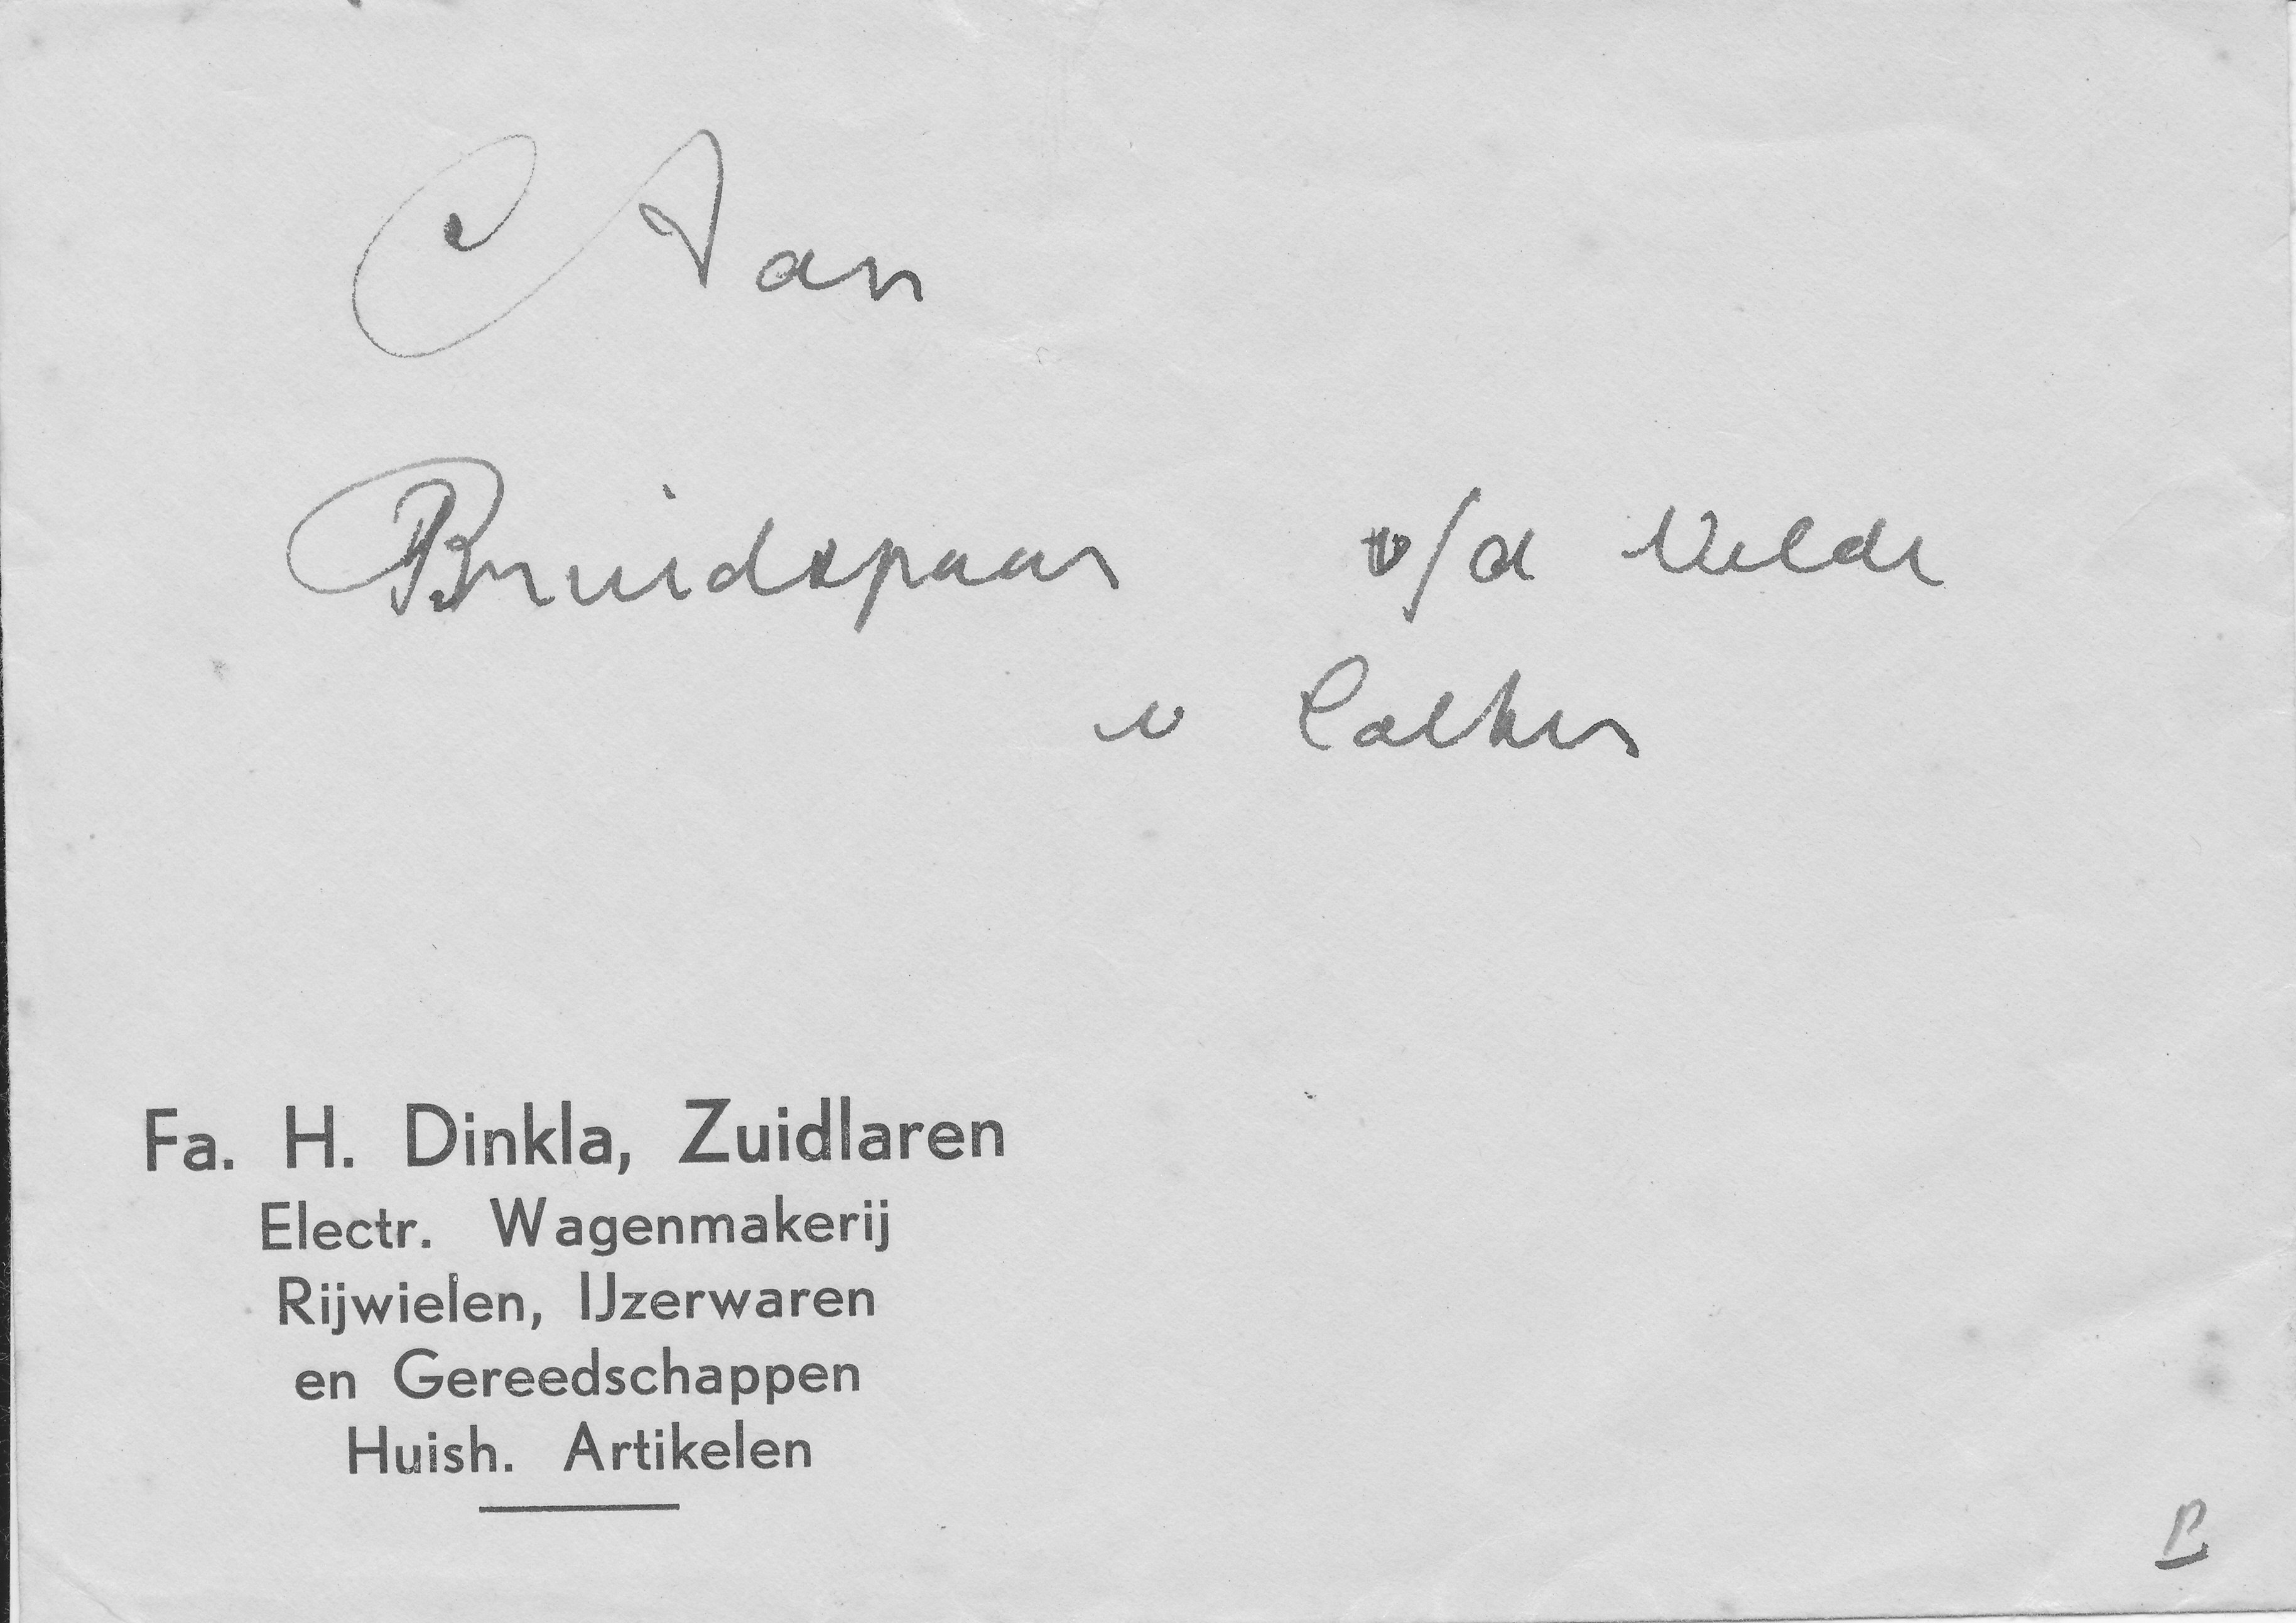 Aan
Bruidspaar v/d Velde
Fa. H. Dinkla, Zuidlaren
Electr. Wagenmakerij
Rijwielen, IJzerwaren
en Gereedschappen
Huish. Artikelen